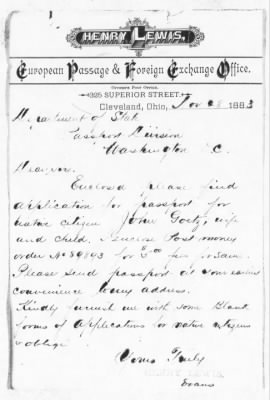 HENRY LEWIS,
European Passage & Foreign Exchange Office.
OPPOSITE POST OFFICE.
325 SUPERIOR STREET.
Cleveland, Ohio, Nov 1883
Department of State
Passport Division
Washington D.C.
Dear Sirs.
Enclosed please find
application for passport for
native citizen John Goetz, wife
and Child. I enclose Post money
order No for 5 00 fee for same.
Please send passport at your earliest
convenience to my address.
Kindly furnish me with some Blank
forms of Applications for native citizens
& oblige
Yours Truly
HENRY LEWIS
Evans